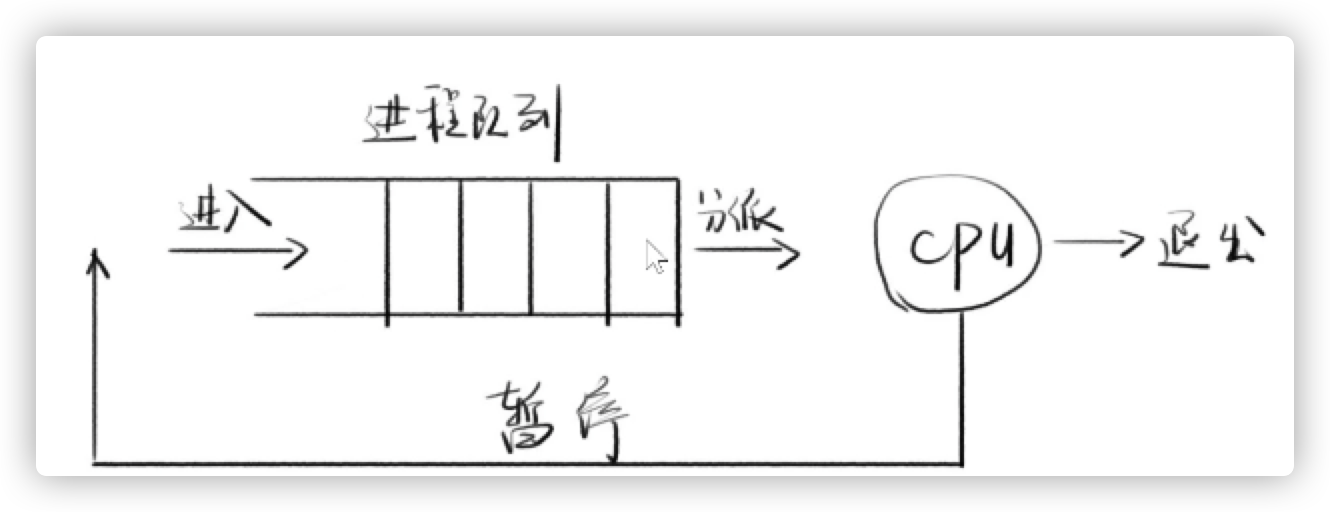 进程队列
进入
分派
cpu
退出
暂停